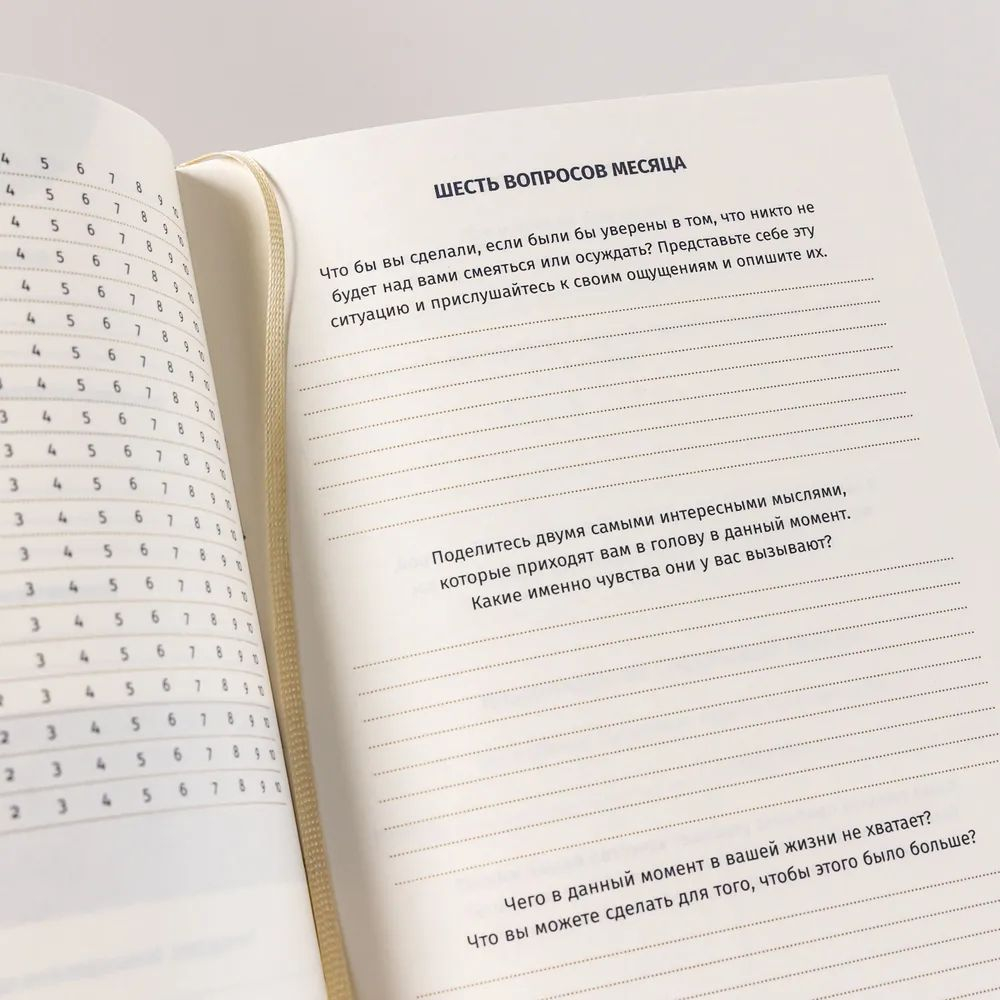 4 5 6 7 8 9 10
4 5 6 7 8 9 10
4 5 6 7 8 9 10
4 5 6 7 8 9 10
4 5 6 7 8 9 10
4 5 6 7 8 9 10
4 5 6 7 8 9 10
4 5 6 7 8 9 10
3 4 5 6 7 8 9 10
3 4 5 6 7 8 9 10
3 4 5 6 7 8 9 10
3 4 5 6 7 8 9 10
3 4 5 6 7 8 9 10
3 4 5 6 7 8 9 10
3 4 5 6 7 8 9 10
3 4 5 6 7 8 9 10
2 3 4 5 6 7 8 9 10
2 3 4 5 6 7 8 9 10
2 3 4 5 6 7 8 9 10
2 3 4 5 6 7 8 9 10
ШЕСТЬ ВОПРОСОВ МЕСЯЦА
Что бы вы сделали, если были бы уверены в том, что никто не
будет над вами смеяться или осуждать? Представьте себе эту
ситуацию и прислушайтесь к своим ощущениям и опишите их.
Поделитесь двумя самыми интересными мыслями,
которые приходят вам в голову в данный момент.
Какие именно чувства они у вас вызывают?
Чего в данный момент в вашей жизни не хватает?
Что вы можете сделать для того, чтобы этого было больше?